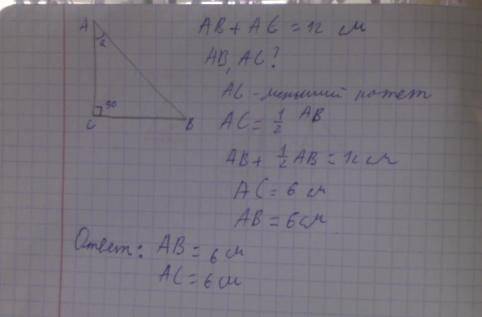 AB + AC = 12 см
A
2
AB, AC?
AC - меньший катет
AC = 1/2 AB
90
C
B
AB + 1/2 AB = 12 см
AC = 6 см
AB = 6 см
Ответ: AB = 6 см
AC = 6 см